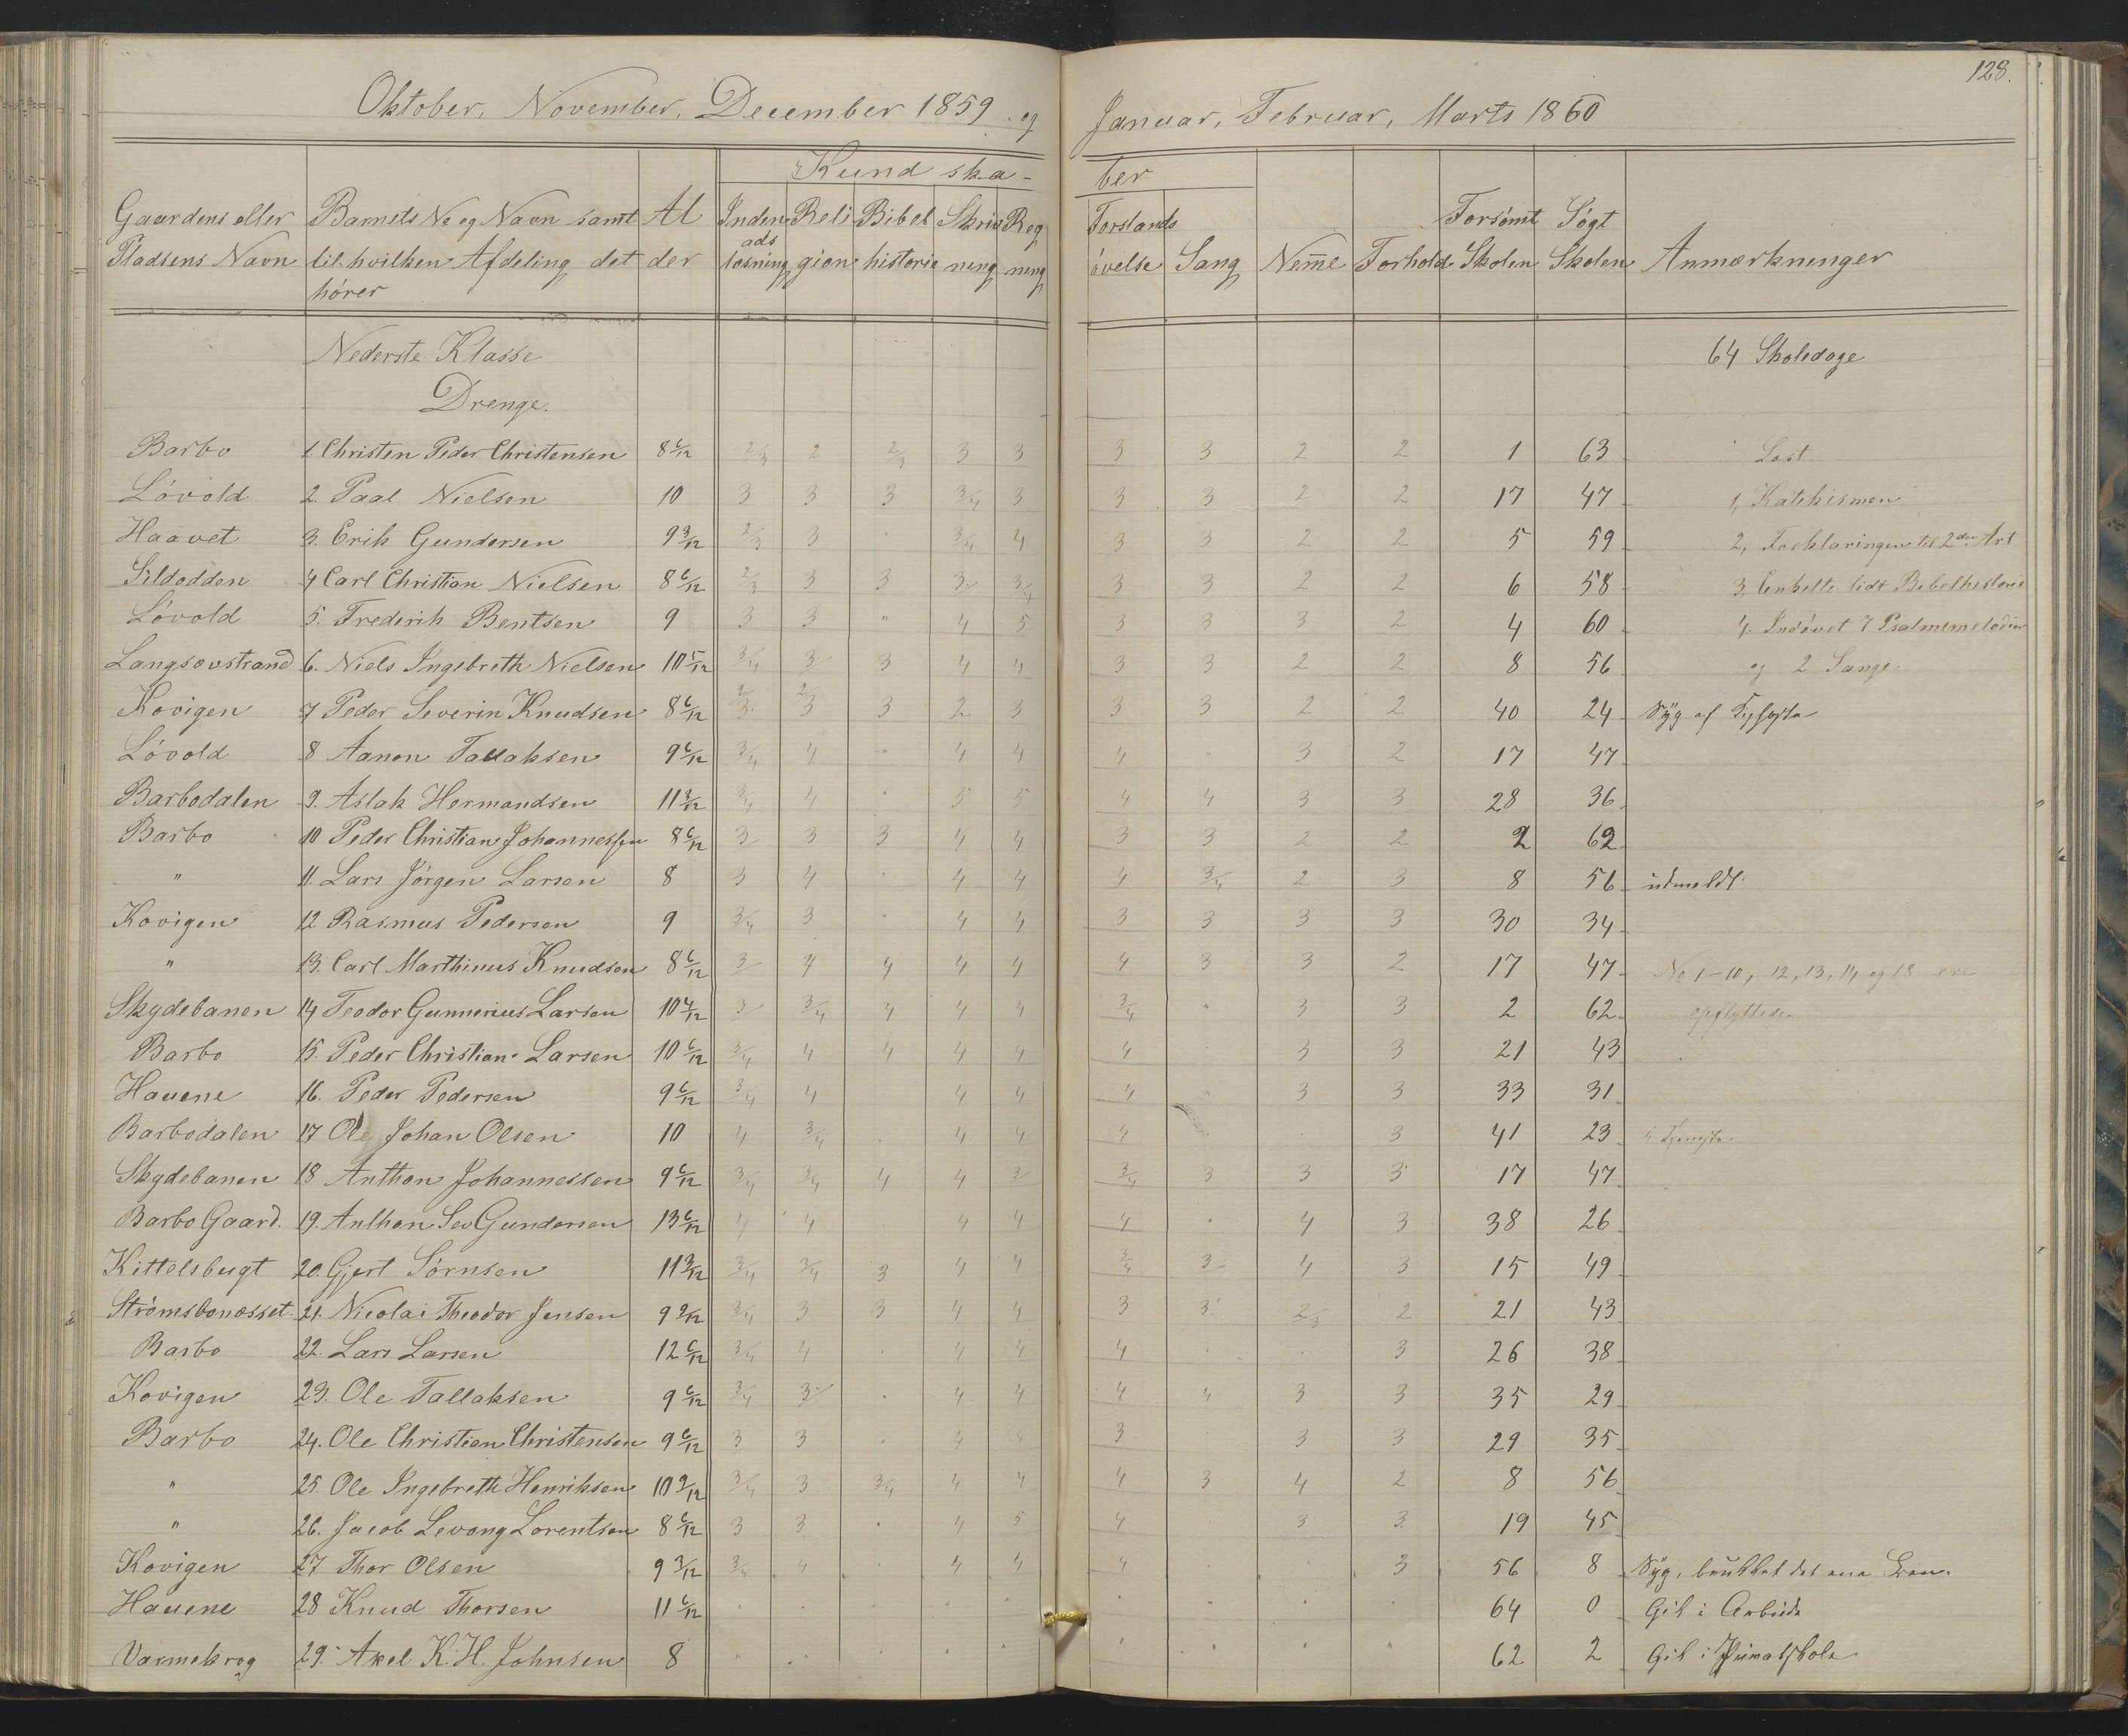 128.
Oktober, November, December 1859 og Januar, Februar, Marts 1860
Kundskaber
Gaardens eller Pladsens Navn | Barnets No og Navn samt til hvilken Afdeling det hører | Alder | Indenadslæsning | Religion | Bibelhistorie | Skrivning | Regning | Forstandsøvelse | Sang | Nem̅e | Forhold | Forsømt Skolen | Søgt Skolen | Anmærkninger
Nederste Klasse 64 Skoledage
Drenge.
Barbo 1. Christen Peder Christensen 8 6/12 2/3 2 2/3 3 3 3 3 2 2 1 63 Læst
Lövold 2. Paal Nielsen 10 3 3 3 3/4 3 3 3 2 2 17 47 1, Katekismen
Haavet 3. Erik Gundersen 9 3/12 2/3 3 . 3/4 4 3 3 2 2 5 59 2, Forklaringen til 2den Art
Sildodden 4 Carl Christian Nielsen 8 6/12 2/3 3 3 3 3/4 3 3 2 2 6 58 3, Enkelte lidt Bibelhistorie
Lövold 5. Frederik Bentsen 9 3 3 " 4 5 3 3 3 2 4 60 4. Indøvet 7 Psalmemelodier
Langsævstrand 6. Niels Ingebreth Nielsen 10 5/12 3/4 3 3 4 4 3 3 2 2 8 56 og 2 Sange
Kovigen 7 Peder Severin Knudsen 8 6/12 2/3 2/3 3 2 3 3 3 2 2 40 24 Syg af
Lövold 8 Aanon Tallaksen 9 6/12 3/4 4 " 4 4 4 . 3 2 17 47
Barbodalen 9. Aslak Hermandsen 11 3/12 3/4 4 . 5 5 4 4 3 3 28 36
Barbo 10 Peder Christian Johannessen 8 6/12 3 3 3 4 4 3 3 2 2 2 62
" 11. Lars Jörgen Larsen 8 3 4 . 4 4 4 3/4 2 3 8 56 udmeldt.
Kovigen 12 Rasmus Pedersen 9 3/4 3 . 4 4 3 3 3 3 30 34
" 13. Carl Marthinus Knudsen 8 6/12 3 4 4 4 4 4 3 3 2 17 47 No 1-10, 12, 13, 14 og 18 ere
Skydebanen 14 Teodor Gunnerius Larsen 10 4/12 3 3/4 4 4 4 3/4 " 3 3 2 62 opflyttede
Barbo 15. Peder Christian Larsen 10 6/12 3/4 4 4 4 4 4 . 3 3 21 43
Hauene 16. Peder Pedersen 9 6/12 3/4 4 4 4 4 " 3 3 33 31
Barbodalen 17 Ole Johan Olsen 10 4 3/4 . 4 4 4 . 3 41 23
Skydebanen 18 Anthon Johannessen 9 6/12 3/4 3/4 4 4 3 3/4 3 3 3 17 47
Barbo Gaard. 19. Anthon Sev Gundersen 13 6/12 4 4 4 4 4 . 4 3 38 26
Kittelsbugt 20. Gjert Sörnsen 11 3/12 3/4 3/4 3 4 4 3/4 3 4 3 15 49
Strömsbonæsset 21. Nicolai Theodor Jensen 9 9/12 3/4 3 3 4 4 3 3 2/3 2 21 43
Barbo 22. Lars Larsen 12 6/12 3/4 4 . 4 4 4 . . 3 26 38
Kovigen 23. Ole Tallaksen 9 6/12 3/4 3 . 4 4 4 4 3 3 35 29
Barbo 24. Ole Christian Christensen 9 6/12 3 3 . 4 4 3 3 3 29 35
" 25. Ole Ingebreth Henriksen 10 9/12 3/4 3 3/4 4 4 4 3 4 2 8 56
" 26. Jacob Levang Lorentsen 8 6/12 3 3 . 4 5 4 3 3 19 45
Kovigen 27 Thor Olsen 9 3/12 3/4 4 . 4 4 4 . 3 56 8 Syg, det ene
Hauene 28 Knud Thorsen 11 6/12 . . . . . . . . . 64 0 Gik i Arbeide
Varmekrog 29. Axel K. H. Johnsen 8 . . . . . . . . . 62 2 Gik i Privatskole